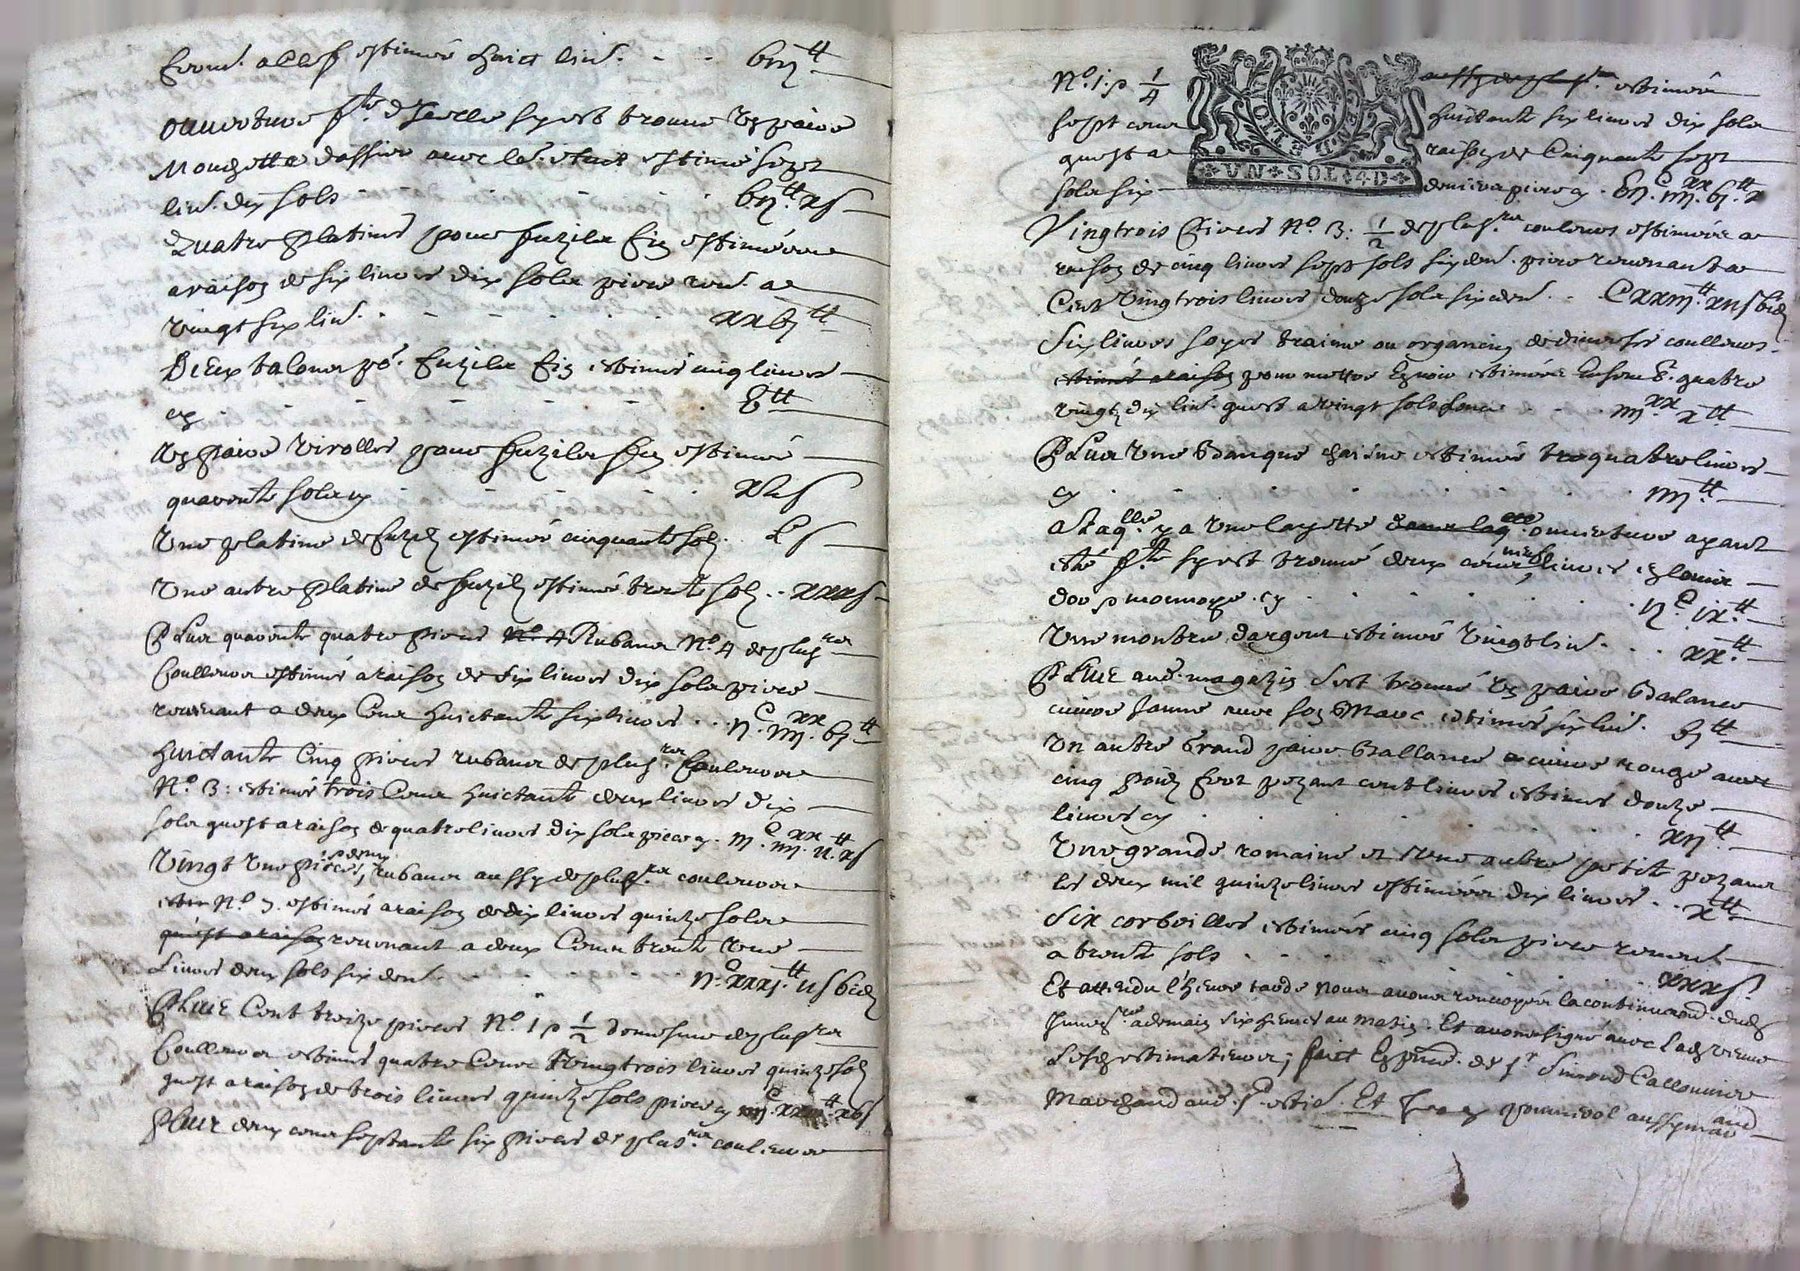 estimé huict livr. - - bııȷ ᵗᵗ
ouverture fte d'icelle sy est trouvé un paire
Mouchettes d'assier avec les. estimé sept
livr. dix sols - - bıȷ ᵗᵗ xs
Quatre platines pour fuzils fin estimées
a raison de six livres dix sols piece rev. a
vingt six livr. - - xxbȷ ᵗᵗ
Deux talons po. fuzils fin estimés cinq livres
cy - - b ᵗᵗ
un paire virolles pour fuzils fin estimés
quarente sols cy - - xls
Une platine de fuzil estimée cinquante sols Ls
Une autre platine de fuzil estimée trente sols - - xxxs
Plus quarente quatre pieces No. 4 Rubans No. 4 de plusrs
Coulleurs estimés a raison de six livres dix sols piece
revenant a deux Cens huictante six livres - - ıȷ C ıııȷ xx bȷ ᵗᵗ
huictante Cinq pieces rubans de plusrs. Couleurs
No. 3: estimés trois Cens huictante deux livres dix
sols quest a raison de quatre livres dix sols piece cy. ııȷ C ıııȷ xx ıȷ ᵗᵗ xs
Vingt une pieces, & demy rubans aussy de plusrs couleurs
No. 7. estimés a raison de dix livres quinze sols
quest a raison revenant a deux Cens trente une
Livres deux sols six den. - - ıȷ C xxxȷ ᵗᵗ ıȷs bıd
Plus Cent treize pieces No. 1 p 1/2 de plusrs
Coulleurs estimés quatre Cens vingtrois livres quinze sols
quest a raison de trois livres quinze sols piece cy ıııȷ C xxııȷ ᵗᵗ xbs
Plus deux cens septante six pieces de plusrs. couleurs
No. 1 p 1/4 estimées
sept cens huictante six livres dix sols
quest a raison de Cinquante sept
sols six deniers piece cy. bıȷ C ıııȷ xx bȷ ᵗᵗ x
UN SOL 4D
Vingtrois Pieces No. 3: 1/2 de plusrs couleurs estimées a
raison de cinq livres sept sols six den. piece revenant a
Cent Vingtrois livres douze sols six den. - Cxxııȷ ᵗᵗ xıȷs bıd
Six livres soyes traime ou organcin de diverses coulleurs
estimés a raison pour mettre estimées Ensemb. quatre
vingt dix livr. quest a vingt sols Lonce - ıııȷ xx x ᵗᵗ
Plus Une Banque chaisne estimée quatre livres
cy - - ıııȷ ᵗᵗ
a Laqlle y a Une layette dans laqlle ouverture ayant
esté fte sy est trouvé deux cens neuf livres
dor monnoye. cy - - ıȷ C ıx ᵗᵗ
Une monstre dargent estimée Vingt livr. - - xx ᵗᵗ
Plus aud. magazin sest trouvé un paire Balance
cuivre Jaune avec son Marc estimés six livr. bȷ ᵗᵗ
Un autre Grand paire Ballance cuivre rouge avec
cinq poids fert pezant cent livres estimés douze
livres cy - - xıȷ ᵗᵗ
Une grande romaine et Une autre petite pezant
les deux mil quinze livres estimées dix livres - - x ᵗᵗ
Six corbeilles estimées cinq sols piece revent
a trente sols - - xxxs.
Et attendu l'heure tarde Nous avons renvoyés la continuaôn. dud.
a demain six heures au matin. Et avons signé avec
estimateurs; faict En prnce. de sr Simond
Marchand aud. Et aussy mard